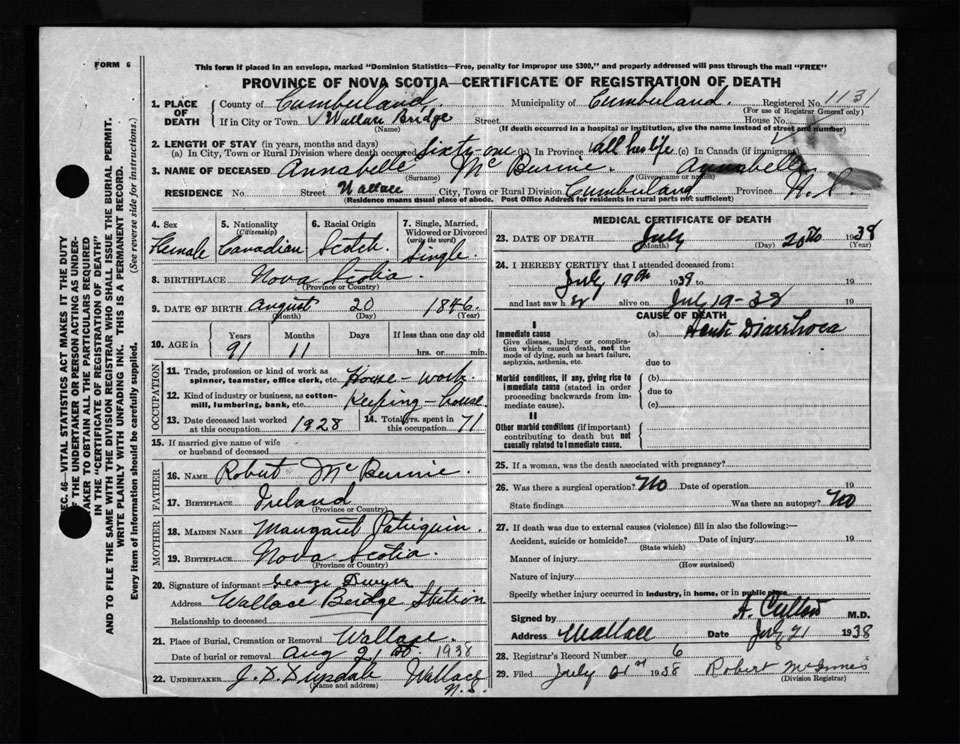 FORM 6
This form if placed in an envelope, marked "Dominion Statistics—Free, penalty for improper use $300," and properly addressed will pass through the mail "FREE"
PROVINCE OF NOVA SCOTIA—CERTIFICATE OF REGISTRATION OF DEATH
SEC. 46—VITAL STATISTICS ACT MAKES IT THE DUTY
OF THE UNDERTAKER OR PERSON ACTING AS UNDER-
TAKER TO OBTAIN ALL THE PARTICULARS REQUIRED
IN THE "CERTIFICATE OF REGISTRATION OF DEATH"
AND TO FILE THE SAME WITH THE DIVISION REGISTRAR WHO SHALL ISSUE THE BURIAL PERMIT.
WRITE PLAINLY WITH UNFADING INK. THIS IS A PERMANENT RECORD.
Every item of information should be carefully supplied. (See reverse side for instructions.)
1. PLACE OF DEATH County of Cumberland, Municipality of Cumberland. Registered No. 1131
(For use of Registrar General only)
If in City or Town Wallace Bridge Street House No.
(Name) (If death occurred in a hospital or institution, give the name instead of street and number)
2. LENGTH OF STAY (in years, months and days)
(a) In City, Town or Rural Division where death occurred Sixty-one (b) In Province all her life (c) In Canada (if immigrant)
3. NAME OF DECEASED Annabelle Mc Burnie. Annabelle
(Surname) (Given name or names)
RESIDENCE No. Street Wallace City, Town or Rural Division Cumberland N.S.
(Residence means usual place of abode. Post Office Address for residents in rural parts not sufficient)
4. Sex Female
5. Nationality (Citizenship) Canadian
6. Racial Origin Scotch
7. Single, Married, Widowed or Divorced (write the word) Single.
8. BIRTHPLACE Nova Scotia.
(Province or Country)
9. DATE OF BIRTH August 20 1846.
(Month) (Day) (Year)
10. AGE in Years Months Days If less than one day old
91 11 hrs. or min.
OCCUPATION
11. Trade, profession or kind of work as spinner, teamster, office clerk, etc. House-work
12. Kind of industry or business, as cotton-mill, lumbering, bank, etc. Keeping-house
13. Date deceased last worked at this occupation 1928
14. Total yrs. spent in this occupation 71
15. If married give name of wife or husband of deceased
FATHER
16. NAME Robert Mc Burnie.
17. BIRTHPLACE Ireland,
(Province or Country)
MOTHER
18. MAIDEN NAME Margaret Patriquin.
19. BIRTHPLACE Nova Scotia.
(Province or Country)
20. Signature of informant George Dwyer
Address Wallace Bridge Station
Relationship to deceased
21. Place of Burial, Cremation or Removal Wallace.
Date of burial or removal Aug 21st 1938
22. UNDERTAKER Wallace N.S.
(Name and address)
MEDICAL CERTIFICATE OF DEATH
23. DATE OF DEATH July 20th 1938
(Month) (Day) (Year)
24. I HEREBY CERTIFY that I attended deceased from:
July 19th 1938 to 19
and last saw her alive on July 19-38 19
CAUSE OF DEATH
I
Immediate cause (a) Diarrhoea
Give disease, injury or complication which caused death, not the mode of dying, such as heart failure, asphyxia, asthenia, etc.
due to
Morbid conditions, if any, giving rise to immediate cause (stated in order proceeding backwards from immediate cause).
(b)
due to
(c)
II
Other morbid conditions (if important) contributing to death but not causally related to immediate cause.
25. If a woman, was the death associated with pregnancy?
26. Was there a surgical operation? No Date of operation 19
State findings Was there an autopsy? No
27. If death was due to external causes (violence) fill in also the following:—
Accident, suicide or homicide? Date of injury 19
(State which)
Manner of injury
(How sustained)
Nature of injury
Specify whether injury occurred in industry, in home, or in public place
Signed by M.D.
Address Wallace Date July 21 1938
28. Registrar's Record Number 6
29. Filed July 21st 1938 Robert McInnes
(Division Registrar)